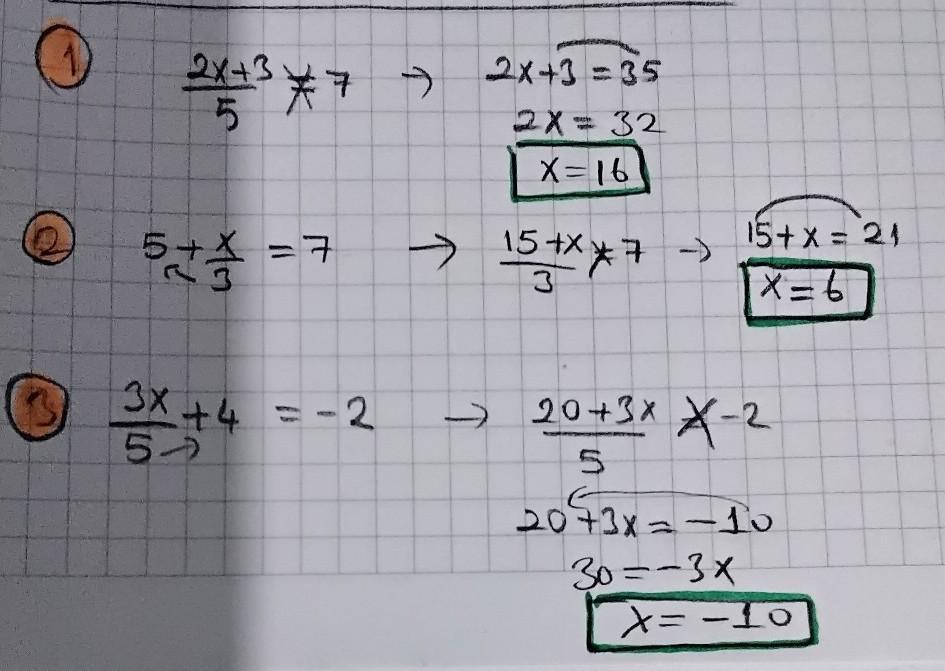 1
(2x+3)/5 = 7 → 2x+3 = 35
2x = 32
x = 16
2
5 + x/3 = 7 → (15+x)/3 = 7 → 15+x = 21
x = 6
3
3x/5 + 4 = -2 → (20+3x)/5 = -2
20+3x = -10
30 = -3x
x = -10